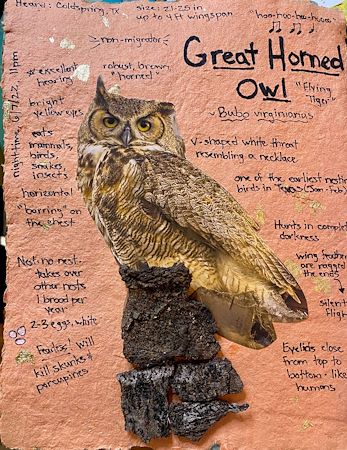 Heard: Coldspring, TX
nighttime, 6/7/22, 11pm
size: 21-25 in
up to 4 ft wingspan
"hoo-hoo-hoo-hooo"
non-migrator
Great Horned
Owl
"Flying
Tiger"
Bubo virginianus
* excellent
hearing
robust, brown,
"horned"
bright
yellow eyes
eats
mammals,
birds,
snakes,
insects
V-shaped white throat
resembling a necklace
one of the earliest nesting
birds in Texas (Jan-Feb)
horizontal
"barring" on
the chest
Hunts in complete
darkness
Nest: no nest-
takes over
other nests
1 brood per
year
2-3 eggs, white
wing feathers
are ragged
the ends
silent
flight
Fearless! Will
kill skunks &
porcupines
Eyelids close
from top to
bottom - like
humans